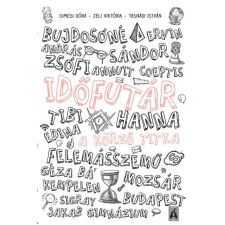 GIMESI DÓRA • ZELI VIKTÓRIA • TASNÁDI ISTVÁN
BUJDOSÓNÉ ERVIN
ANDRÁS SÁNDOR
ZSÓFI ANNUIT COEPTIS
IDŐFUTÁR
TIBI HANNA
EDINA
A KÖRZŐ TITKA
FELEMÁSSZEMŰ
GÉZA BÁ MOZSÁR
KEMPELEN
SIGRAY BUDAPEST
JAKAB GIMNÁZIUM